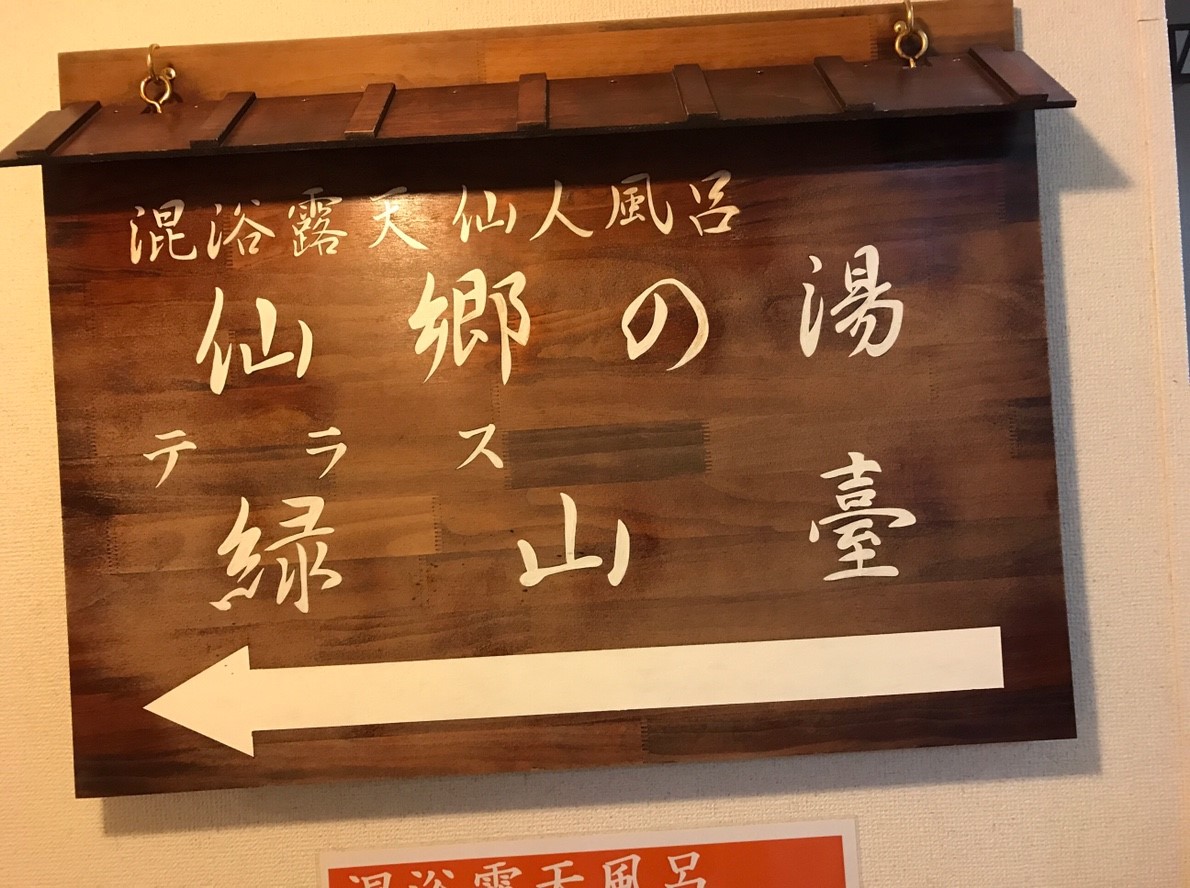 混浴露天仙人風呂
仙郷の湯
テラス
緑山臺
混浴露天風呂